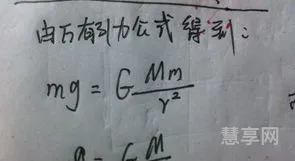 由万有引力公式得到：
mg = G Mm/r²
g = G M
慧享网